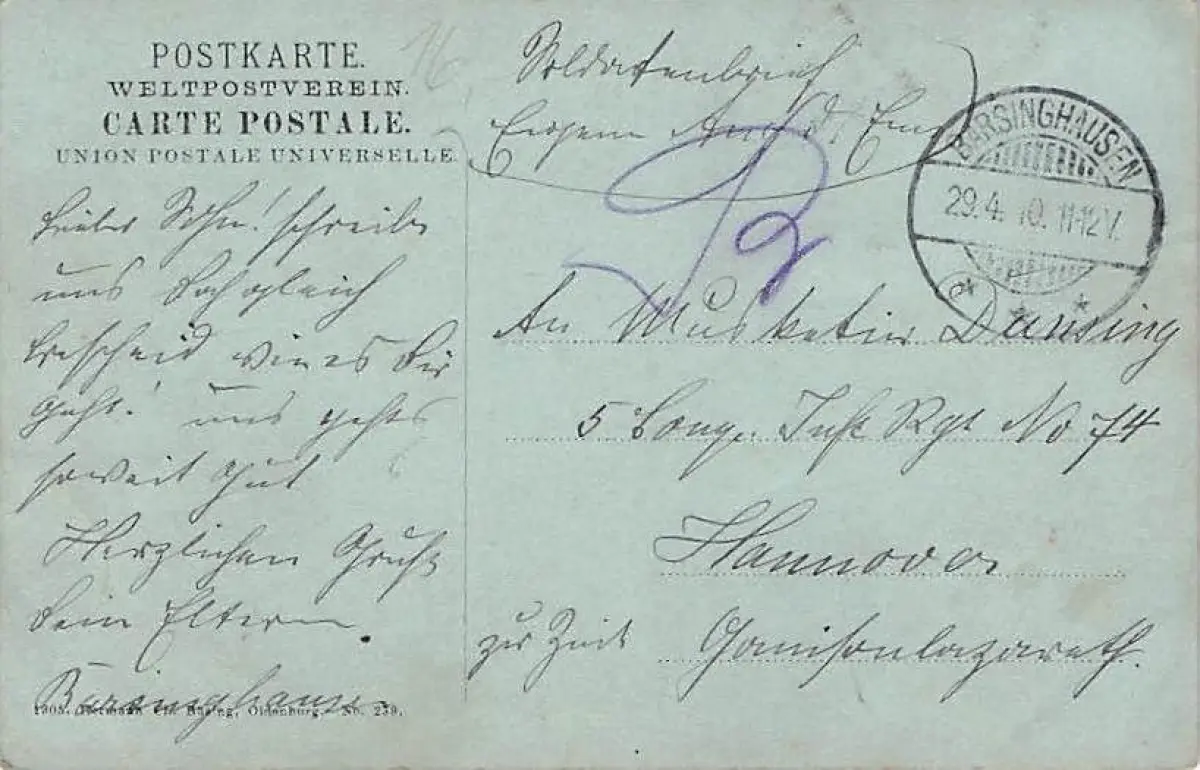 POSTKARTE.
WELTPOSTVEREIN.
CARTE POSTALE.
UNION POSTALE UNIVERSELLE.
Soldatenbrief
Eigene Ang. d. Em
BARSINGHAUSEN
29.4.10. 11-12 V.
Lieber Sohn! schreibe
uns doch gleich
bescheid wie es dir
geht! uns gehts
soweit gut
Herzlichen Gruß
dein Eltern.
Barsinghausen
An Musketier Dansing
5 Comp. Inft Rgt No 74
Hannover
zur Zeit Garnisonlazareth.
1905. Oldenburg. No. 239.